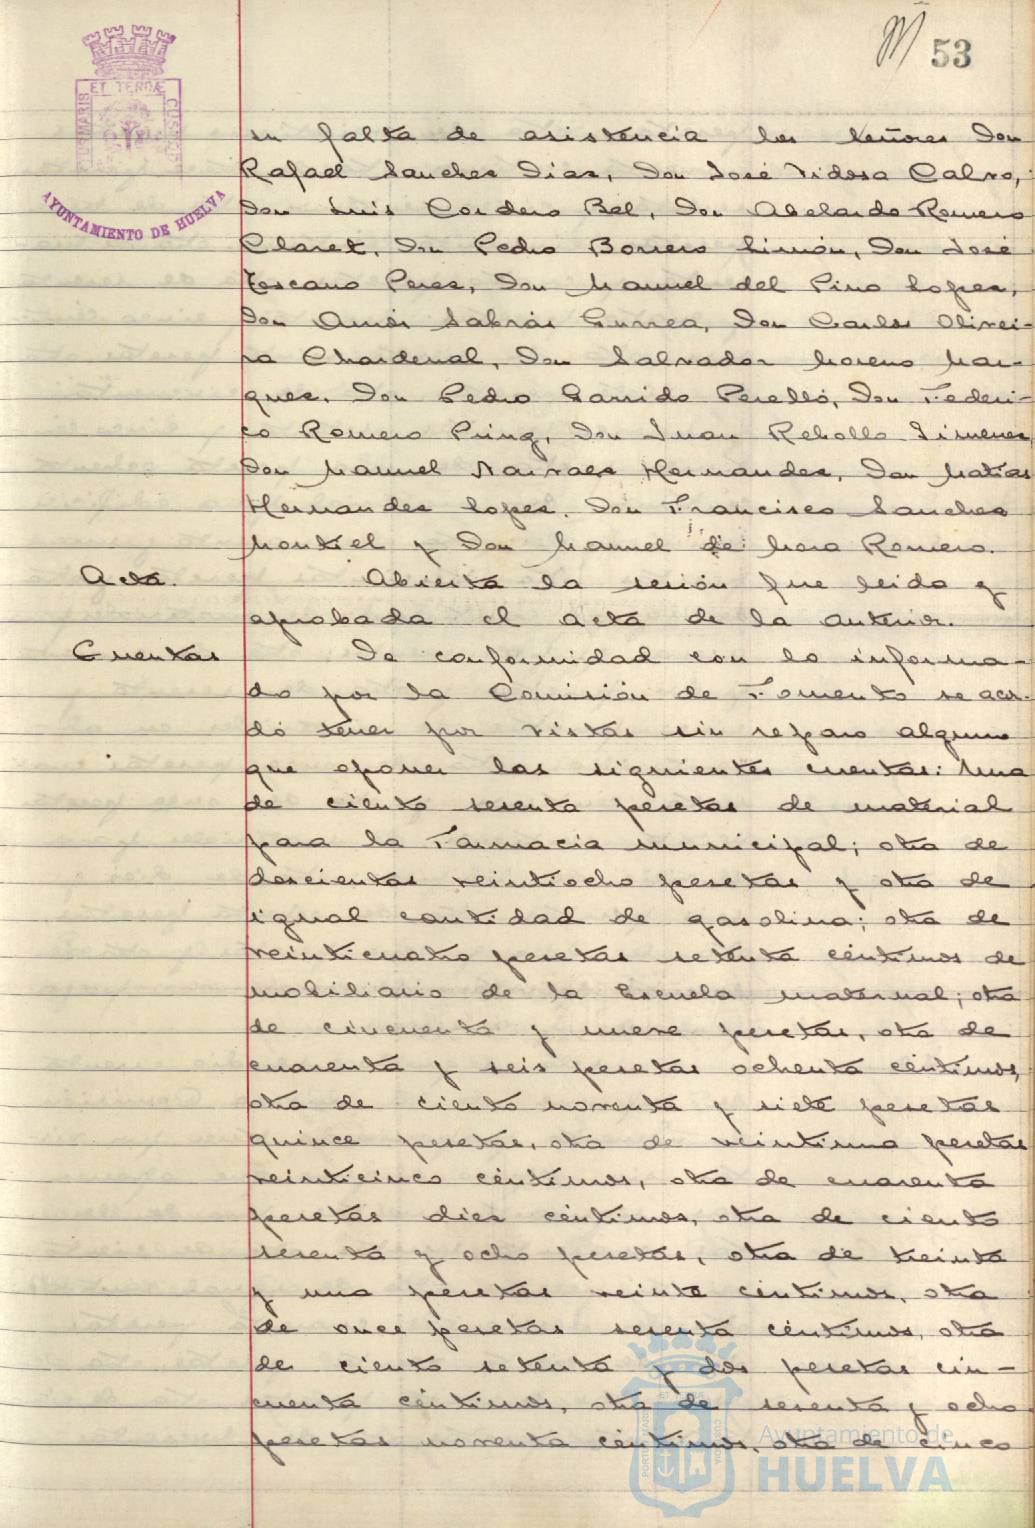 53
ET TERRÆ
AYUNTAMIENTO DE HUELVA
su falta de asistencia los señores Don
Rafael Sanchez Diaz, Don José Vidosa Calvo,
Don Luis Cordero Bel, Don Abelardo Romero
Claret, Don Pedro Borrero Limón, Don José
Toscano Perez, Don Manuel del Pino Lopez,
Don Amós Sabrás Gurrea, Don Carlos Olivei-
ra Chardenal, Don Salvador Moreno Mar-
quez, Don Pedro Garrido Perelló, Don Federi-
co Romero Puig, Don Juan Rebollo Jimenez,
Don Manuel Narvaez Hernandez, Don Matías
Hernandez Lopez, Don Francisco Sanchez
Montiel y Don Manuel de Mora Romero.
Acta. Abierta la sesión fue leida y
aprobada el acta de la anterior.
Cuentas De conformidad con lo informa-
do por la Comisión de Fomento se acor-
dó tener por vistas sin reparo alguno
que oponer las siguientes cuentas: Una
de ciento sesenta pesetas de material
para la Farmacia municipal; otra de
doscientas veintiocho pesetas y otra de
igual cantidad de gasolina; otra de
veinticuatro pesetas setenta céntimos de
mobiliario de la Escuela maternal; otra
de cincuenta y nueve pesetas, otra de
cuarenta y seis pesetas ochenta céntimos,
otra de ciento noventa y siete pesetas
quince pesetas, otra de veintiuna pesetas
veinticinco céntimos, otra de cuarenta
pesetas diez céntimos, otra de ciento
sesenta y ocho pesetas, otra de treinta
y una pesetas veinte céntimos, otra
de once pesetas sesenta céntimos, otra
de ciento setenta y dos pesetas cin-
cuenta céntimos, otra de sesenta y ocho
pesetas noventa céntimos, otra de cinco
Ayuntamiento de
HUELVA